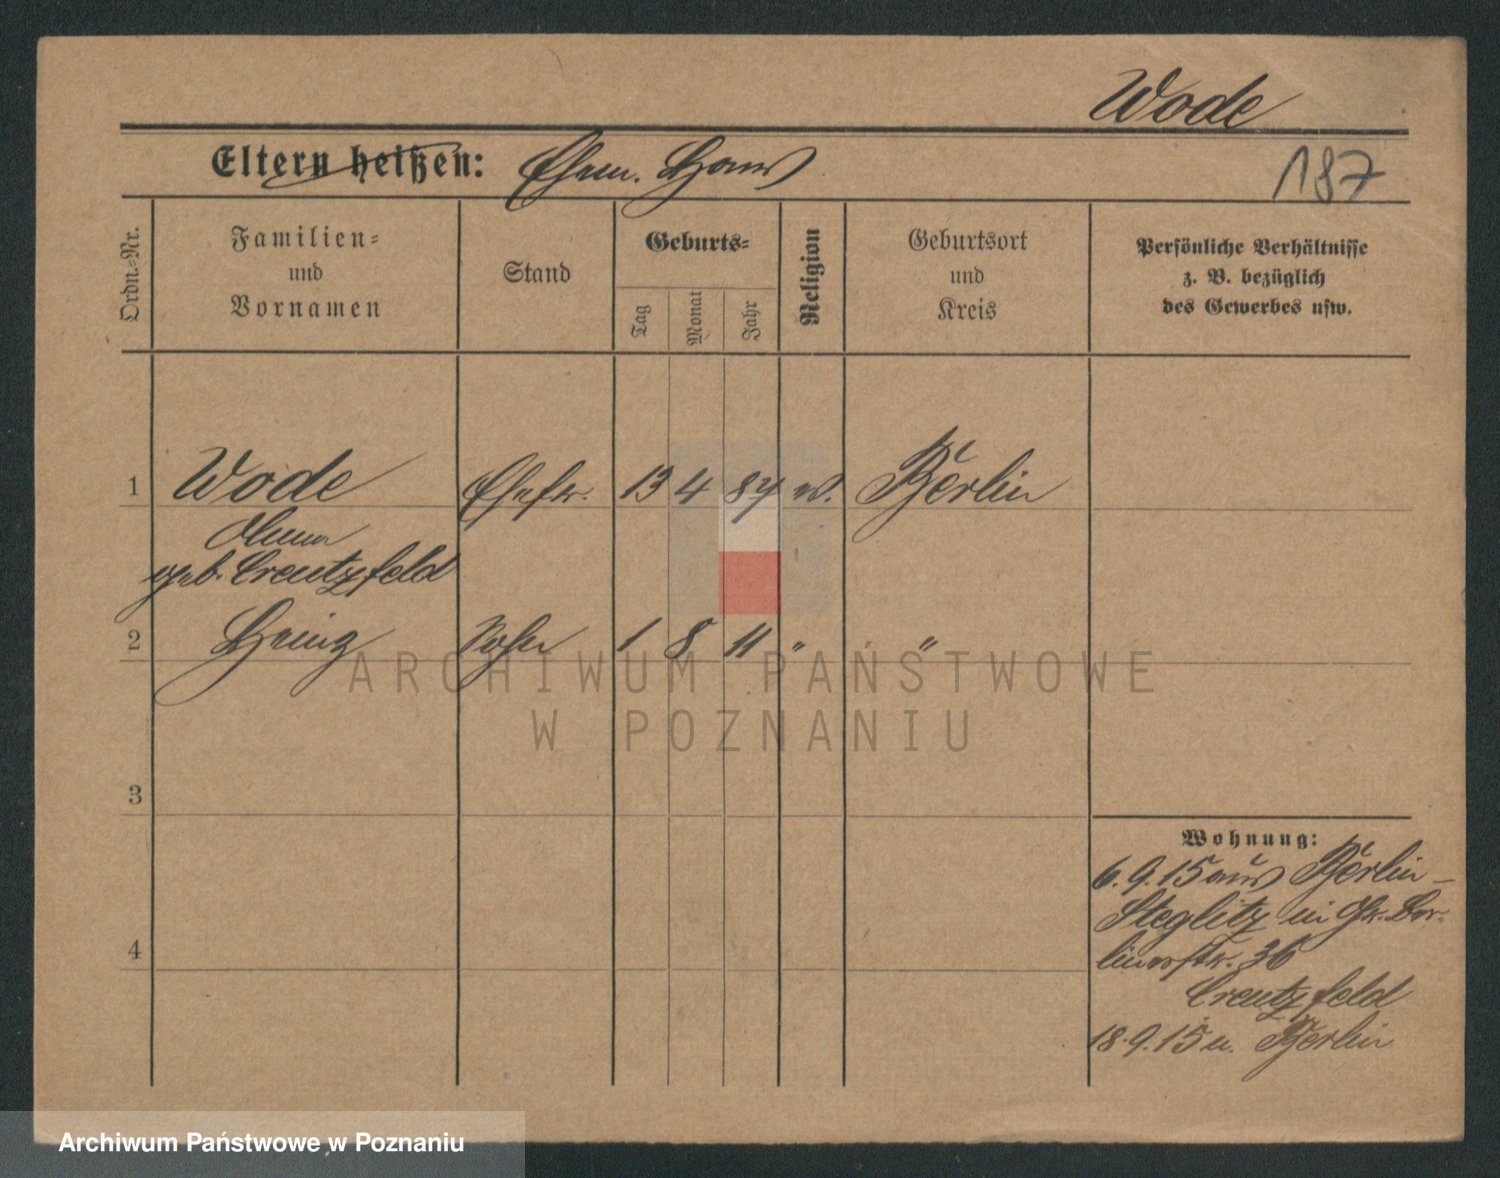 Wode
Eltern heißen: Ehem. Hans
187
Ordn.-Nr.
Familien-
und
Vornamen
Stand
Geburts-
Tag
Monat
Jahr
Religion
Geburtsort
und
Kreis
Persönliche Verhältnisse
z. B. bezüglich
des Gewerbes usw.
1 Wode Ehefr. 13 4 84 ev. Berlin
geb. Creutzfeld
2 Heinz Sohn 1 8 11 " "
3
4
Wohnung:
6.9.15 aus Berlin-
Steglitz in Gr. Ber-
linerstr. 36
Creutzfeld
18.9.15 n. Berlin
ARCHIWUM PAŃSTWOWE
W POZNANIU
Archiwum Państwowe w Poznaniu